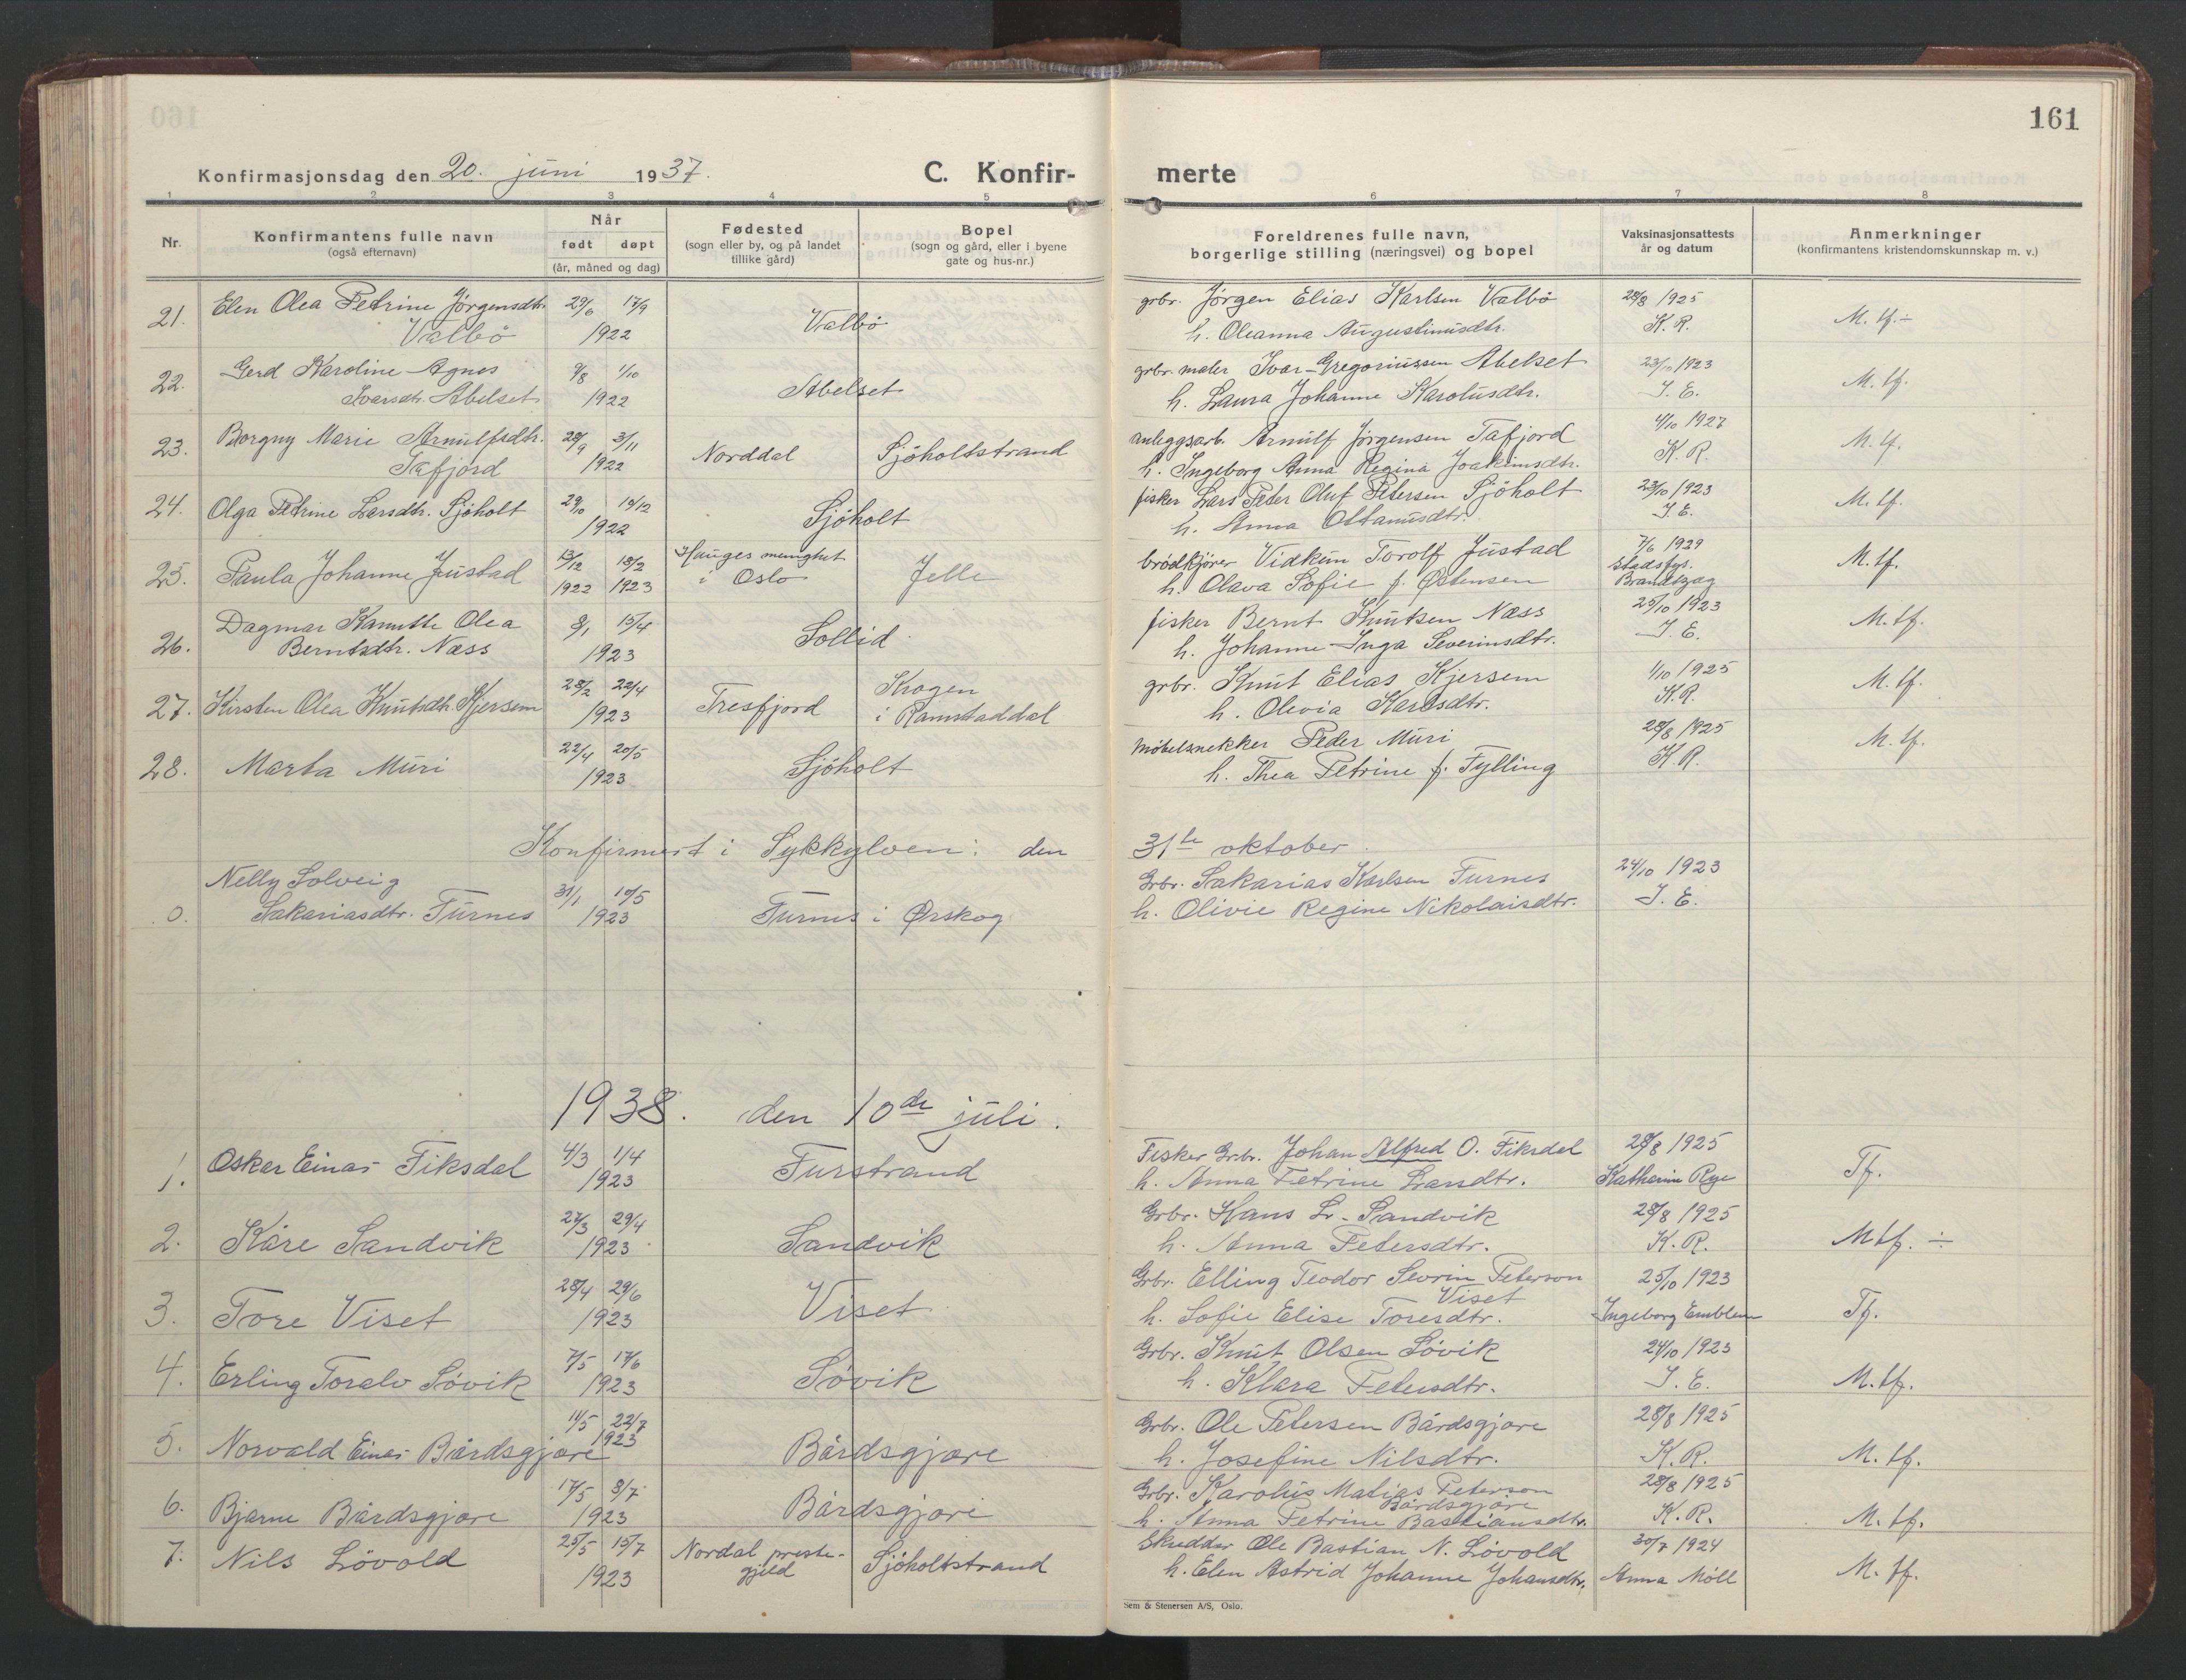 161
Konfirmasjonsdag den 20. juni 1937.
C. Konfir-
merte
1 2 3 4 5 6 7 8
Nr.
Konfirmantens fulle navn
(også efternavn)
Når
født døpt
(år, måned og dag)
Fødested
(sogn eller by, og på landet
tillike gård)
Bopel
(sogn og gård, eller i byene
gate og hus-nr.)
Foreldrenes fulle navn,
borgerlige stilling (næringsvei) og bopel
Vaksinasjonsattests
år og datum
Anmerkninger
(konfirmantens kristendomskunnskap m. v.)
21. Elen Olea Petrine Jørgensdtr. 29/6 17/9 Valbö grbr. Jørgen Elias Karlsen Valbö 28/8 1925 M. tf. ÷
Valbö 1922 h. Oleanna Augustinusdtr. K. R.
22. Gerd Karoline Agnes 9/8 1/10 Abelset grbr. maler Ivar Gregoriussen Abelset 23/10 1923 M. tf.
Ivarsdtr. Abelset 1922 h. Laura Johanne Karolusdtr. I. E.
23. Borgny Marie Arnulfsdtr. 28/9 3/11 Norddal Sjöholtstrand anleggsarb. Arnulf Jørgensen Tafjord 4/10 1927 M. tf.
Tafjord 1922 h. Ingeborg Anna Regina Joakimsdtr. K. R.
24. Olga Petrine Larsdtr. Sjöholt 29/10 10/12 Sjöholt fisker Lars Peder Oluf Petersen Sjöholt 23/10 1923 M. tf.
1922 h. Anna Ottanusdtr. I. E.
25. Paula Johanne Justad 13/12 18/2 Hauges menighet Jelle brödkjörer Vidkun Torolf Justad 7/6 1929 M. tf.
1922 1923 i Oslo h. Olava Sofie f. Østensen stadsfys.
Brandtzæg
26. Dagmar Kanutte Olea 8/1 15/4 Sollid fisker Bernt Knutsen Næss 25/10 1923 M. tf.
Berntsdtr. Næss 1923 h. Johanne Inga Severinsdtr. I. E.
27. Kirsten Olea Knutsdtr. Kjersem 28/2 22/4 Tresfjord Krogen grbr. Knut Elias Kjersem 1/10 1925 M. tf.
1923 i Ramstaddal h. Olevia Karlsdtr. K. R.
28. Marta Muri 22/4 20/5 Sjöholt Möbelsnekker Peder Muri 28/8 1925 M. tf.
1923 h. Thea Petrine f. Fylling K. R.
Konfirmert i Sykkylven: den 31te oktober.
Nelly Solveig 31/1 10/5 Grbr. Sakarias Karlsen Furnes 24/10 1923
0. Sakariasdtr. Furnes 1923 Furnes i Ørskog h. Olivie Regine Nikolaisdtr. I. E.
1938. den 10de juli.
1. Oskar Einar Fiksdal 4/3 1/4 Furstrand Fisker Grbr. Johan Alfred O. Fiksdal 28/8 1925 Tf.
1923 h. Anna Petrine Larsdtr. Katharine Rye
2. Kåre Sandvik 27/3 29/4 Sandvik Grbr. Hans L. Sandvik 28/8 1925 Mtf. ÷
1923 h. Anna Petersdtr. K. R.
3. Tore Viset 28/4 29/6 Viset Grbr. Elling Teodor Sevrin Peterson 25/10 1923 Tf.
Viset
1923 h. Sofie Elise Toresdtr. Ingeborg Emblem
4. Erling Toralv Sövik 7/5 17/6 Sövik Grbr. Knut Olsen Sövik 24/10 1923 M. tf.
1923 h. Klara Petersdtr. I. E.
5. Norvald Einar Bårdsgjære 11/5 22/7 Bårdsgjære Grbr. Ole Petersen Bårdsgjære 28/8 1925 M. tf.
1923 h. Josefine Nilsdtr. K. R.
6. Bjarne Bårdsgjære 17/5 8/7 Bårdsgjære Grbr. Karolus Matias Peterson 28/8 1925 M. tf.
Bårdsgjære
1923 h. Anna Petrine Bastiansdtr. K. R.
7. Nils Lövold 25/5 15/7 Nordal preste- Sjöholtstrand Skredder Ole Bastian N. Lövold 30/7 1924 M. tf.
1923 gjeld h. Elen Astrid Johanne Johansdtr. Anna Möll
Sem & Stenersen A/S, Oslo.